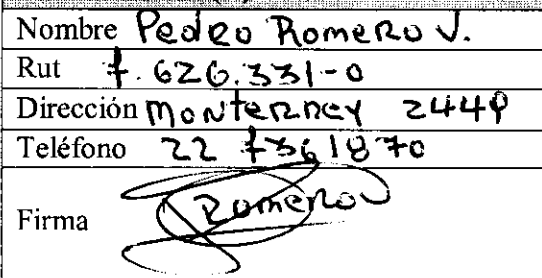 Nombre Pedro Romero V.
Rut 7.626.331-0
Dirección Monterrey 2449
Teléfono 22 7361870
Firma Romero